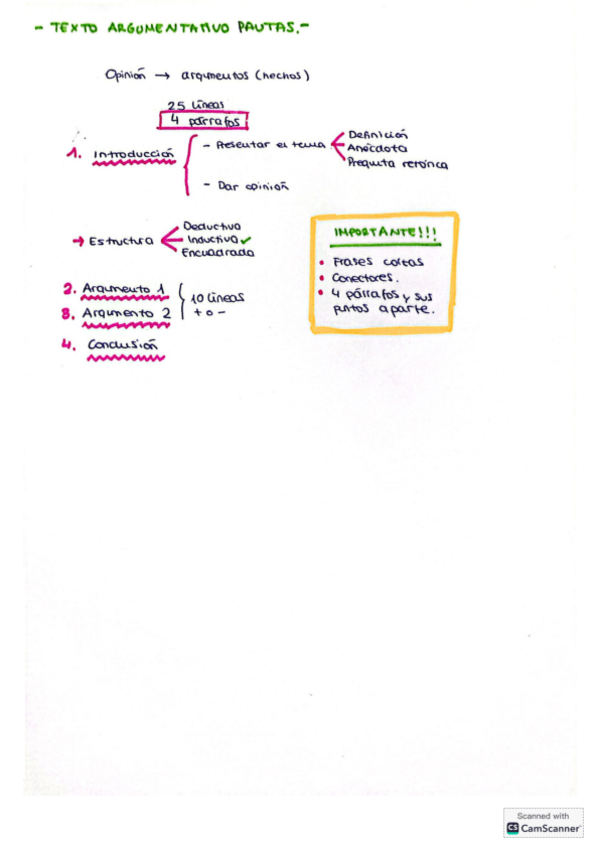 - TEXTO ARGUMENTATIVO PAUTAS.-
Opinión → argumentos (hechos)
25 líneas
4 párrafos
1. Introducción
- Presentar el tema
Definición
Anécdota
Pregunta retórica
- Dar opinión
→ Estructura
Deductiva
Inductiva ✓
Encuadrada
IMPORTANTE!!!
• Frases cortas
• Conectores.
• 4 párrafos y sus
puntos aparte.
2. Argumento 1
3. Argumento 2
10 líneas
+ o -
4. Conclusión
Scanned with
CS CamScanner